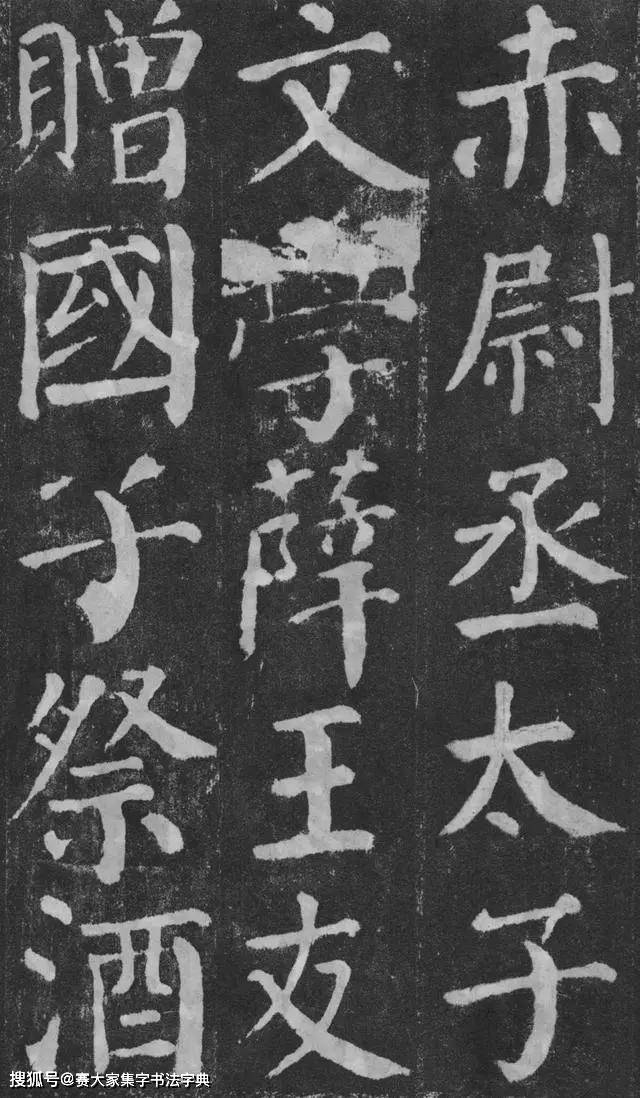 赤尉丞太子
文学薛王友
贈國子祭酒
搜狐号@赛大家集字书法字典